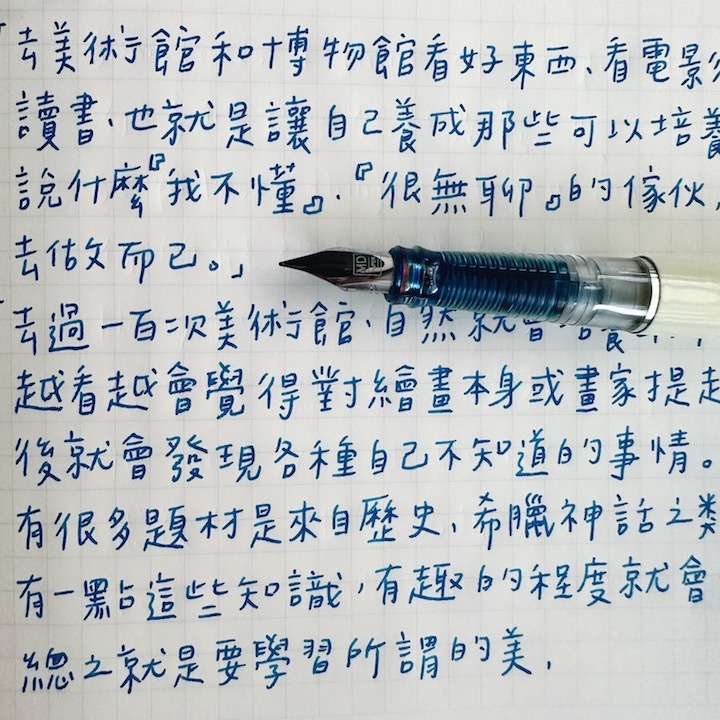 「去美術館和博物館看好東西、看電影
讀書、也就是讓自己養成那些可以培養
說什麼『我不懂』、『很無聊』的傢伙,
去做文而已。」
「去過一百次美術館、自然就會養
越看越會覺得對繪畫本身或畫家提起
後就會發現各種自己不知道的事情。
有很多題材是來自歷史、希臘神話之类
有一點這些知識,有趣的程度就會
總之就是要學習所謂的美,
MD